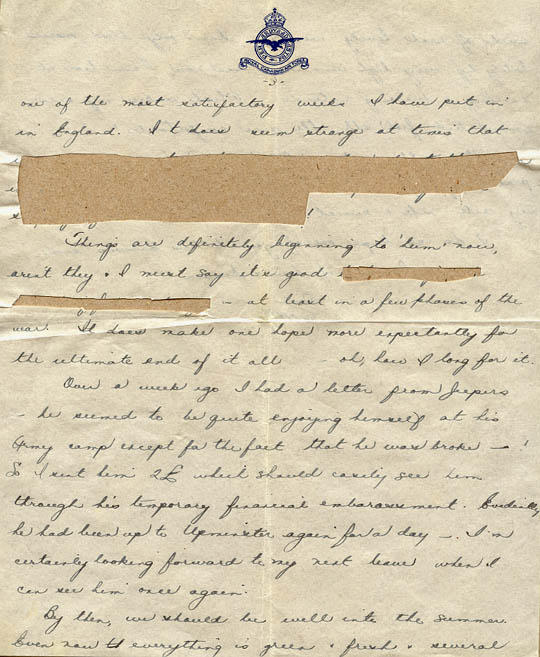 -3-
one of the most satisfactory weeks I have put in
in England. It does seem strange at times that
!
Things are definitely beginning to 'hum' now,
aren't they & I must say it's good
– at least in a few phases of the
war. It does make one hope more expectantly for
the ultimate end of it all – oh, how I long for it.
Over a week ago I had a letter from Jeepers
– he seemed to be quite enjoying himself at his
Army camp except for the fact that he was broke – !
So I sent him 2£ which should easily see him
through his temporary financial embarassment. Evidently
he had been up to Upminster again for a day –. I'm
certainly looking forward to my next leave when I
can see him once again.
By then, we should be well into the summer.
Even now everything is green & fresh & several